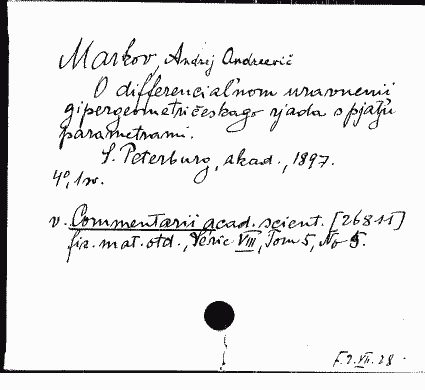 Markov, Andrej Andreevič
O differencial'nom uravnenii
gipergeometričeskago rjada s pjat'ju
parametrami.
S. Peterburg, akad., 1897.
4º, 1 sv.
v. Commentarii acad. scient. [26811]
fiz. mat. otd., Serie VIII, Tom 5, No 5.
F. 9. VII. 28